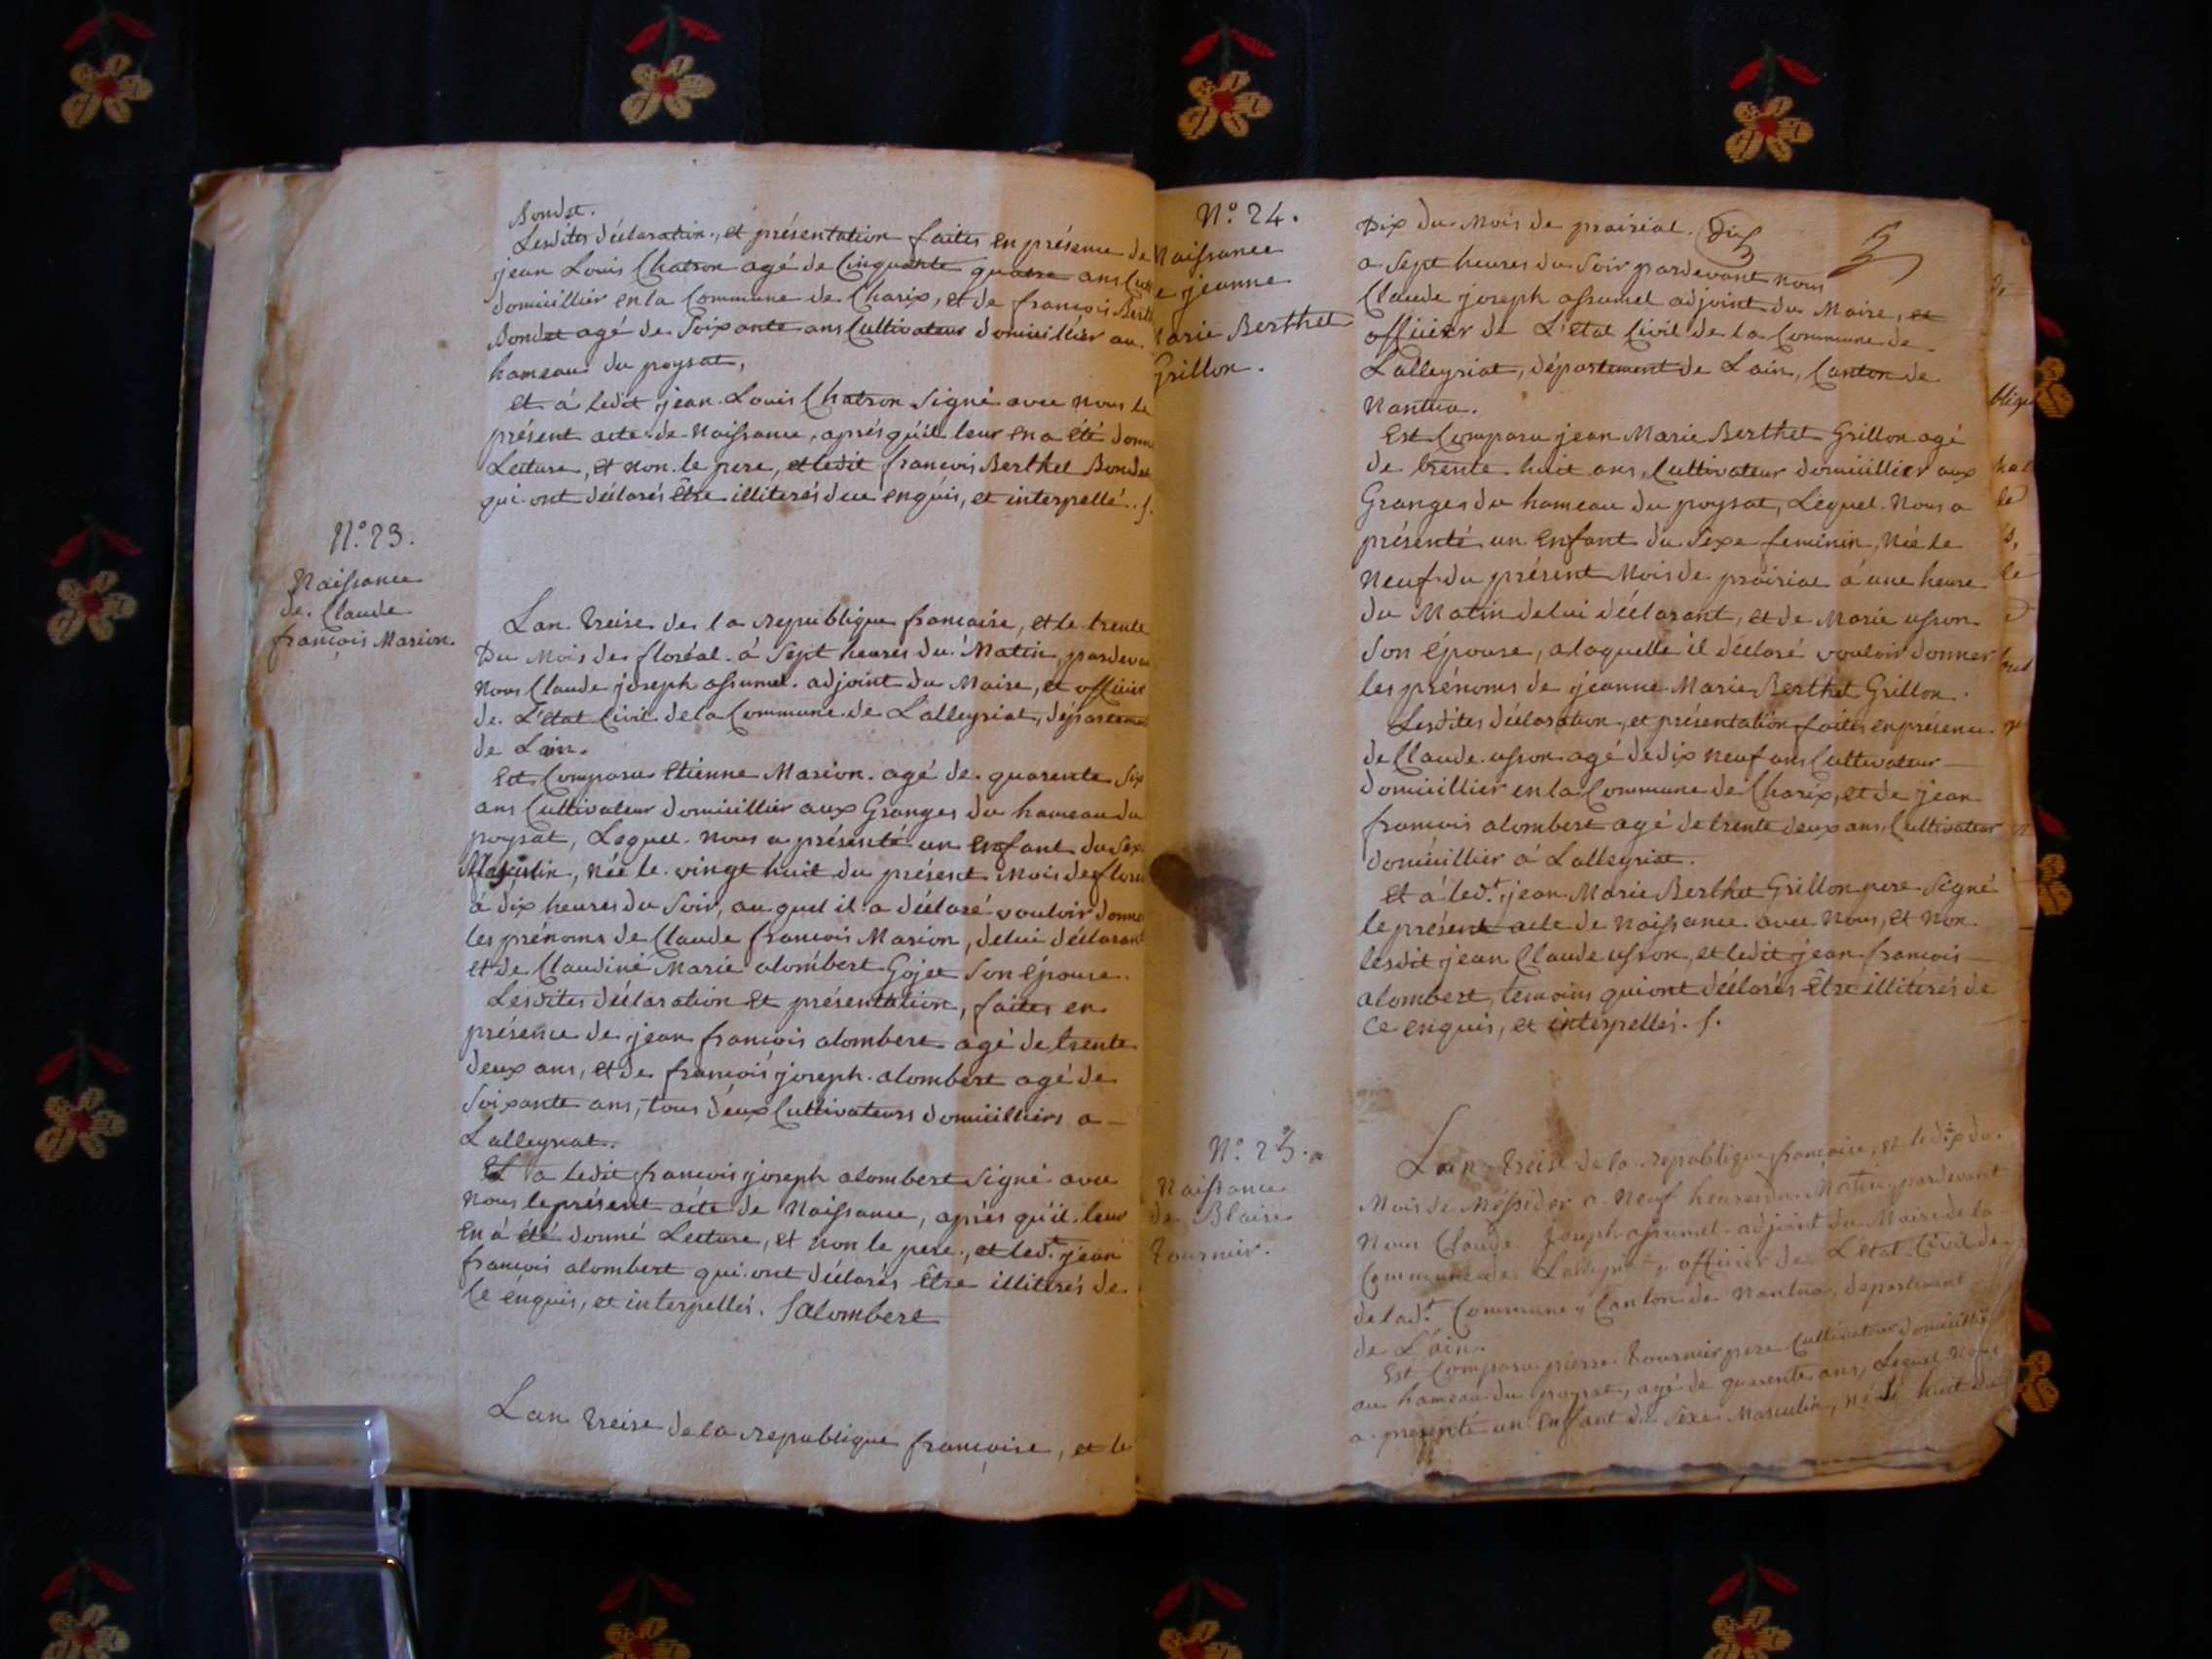 Bondet.
Lesdites déclaration, et présentation faites en présence de
jean Louis Chatron agé de Cinquante quatre ans Cult
domicillier en la Commune de Charix, et de francois Berth
Bondet agé de Soixante ans Cultivateur domicillier au
hameau du poysat,
et á ledit jean Louis Chatron Signé avec nous le
présent acte de Naissance, aprés qu'il leur en a été donn
Lecture, et non le pere, et ledit francois Berthet Bondet
qui ont déclarés Être illiterés de ce enquis, et interpellé. S.
N.° 23.
Naissance
de Claude
francois Marion.
Lan treise de la republique francaise, et le trente
Du Mois de floréal á Sept heures du Matin, pardeva
Nous Claude joseph assumel adjoint du Maire, et officier
de L'état Civil de la Commune de Lalleyriat, départeme
de Lain.
Est Comparu Etienne Marion agé de quarente Six
ans Cultivateur domicillier aux Granges du hameau du
poysat, Lequel Nous a présenté un Enfant du Sexe
Masculin, Née le vingt huit du présent Mois de flore
á dix heures du Soir, au quel il a déclaré vouloir donne
les prénoms de Claude francois Marion, de lui déclarant
et de Claudine Marie alombert Gojet Son épouse.
Lesdites déclaration et présentation, faites en
présence de jean francois alombert agé de trente
deux ans, et de francois joseph alombert agé de
Soixante ans, tous deux Cultivateurs domicilliers a
Lalleyriat.
Et a ledit francois joseph alombert Signé avec
Nous le présent acte de Naissance, aprés qu'il leur
en á été donné Lecture, et non le pere, et led.t jean
francois alombert qui ont déclarés Être illiterés de
Ce enquis, et interpellés. Salombert
Lan treise de la republique francaise, et le
N.° 24.
Naissance
e jeanne
Marie Berthet
Grillon.
Dix du Mois de prairial. Dix
a Sept heures du Soir pardevant nous
Claude joseph assumel adjoint du Maire, et
officier de L'état Civil de la Commune de
Lalleyriat, département de Lain, Canton de
Nantua.
Est Comparu jean Marie Berthet Grillon agé
de trente huit ans, Cultivateur domicillier aux
Granges du hameau du poysat, Lequel Nous a
présenté un Enfant du Sexe feminin, Née le
Neuf du présent Mois de prairial á une heure
du Matin de lui déclarant, et de Marie usson
Son Épouse, a laquelle il déclaré vouloir donner
les prénoms de jeanne Marie Berthet Grillon.
Lesdites déclaration, et présentation faites en présence
de Claude usson agé de dix neuf ans Cultivateur
domicillier en la Commune de Charix, et de jean
francois alombert agé de trente deux ans, Cultivateur
domicillier á Lalleyriat.
Et á led.t jean Marie Berthet Grillon pere Signé
le présent acte de Naissance avec Nous, et Non
lesdit jean Claude usson, et ledit jean francois
alombert, temoins qui ont déclarés Être illitérés de
Ce enquis, et interpellés. S.
N.° 25.
Naissance
de Blaise
tournier.
Lan treise de la republique francaise, et le dix du
Mois de Messidor a Neuf heures du Matin pardevant
Nous Claude Joseph assumel adjoint du Maire de la
Commune de Lalleyriat, officier de L'état Civil de
de lad.t Commune, Canton de Nantua, departement
de L'ain.
Est Comparu pierre tournier pere Cultivateur domicillié
au hameau du poysat, agé de quarente ans, Lequel Nous
a presenté un Enfant du Sexe Masculin, né le huit du